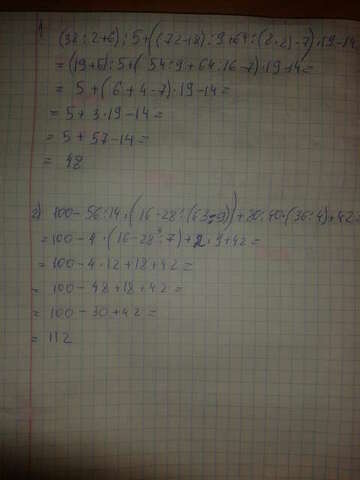 1
(38:2+6):5+((72-18):9+64:(2·2)-7)·19-14
=(19+6):5+(54:9+64:16-7)·19-14=
= 5+(6+4-7)·19-14=
= 5+3·19-14=
= 5+57-14=
= 48
2) 100-56:14·(16-28:(63:9))+80:40·(36:4)+42=
=100-4·(16-28:7)+2·9+42=
=100-4·12+18+42=
= 100-48+18+42=
= 100-30+42=
= 112